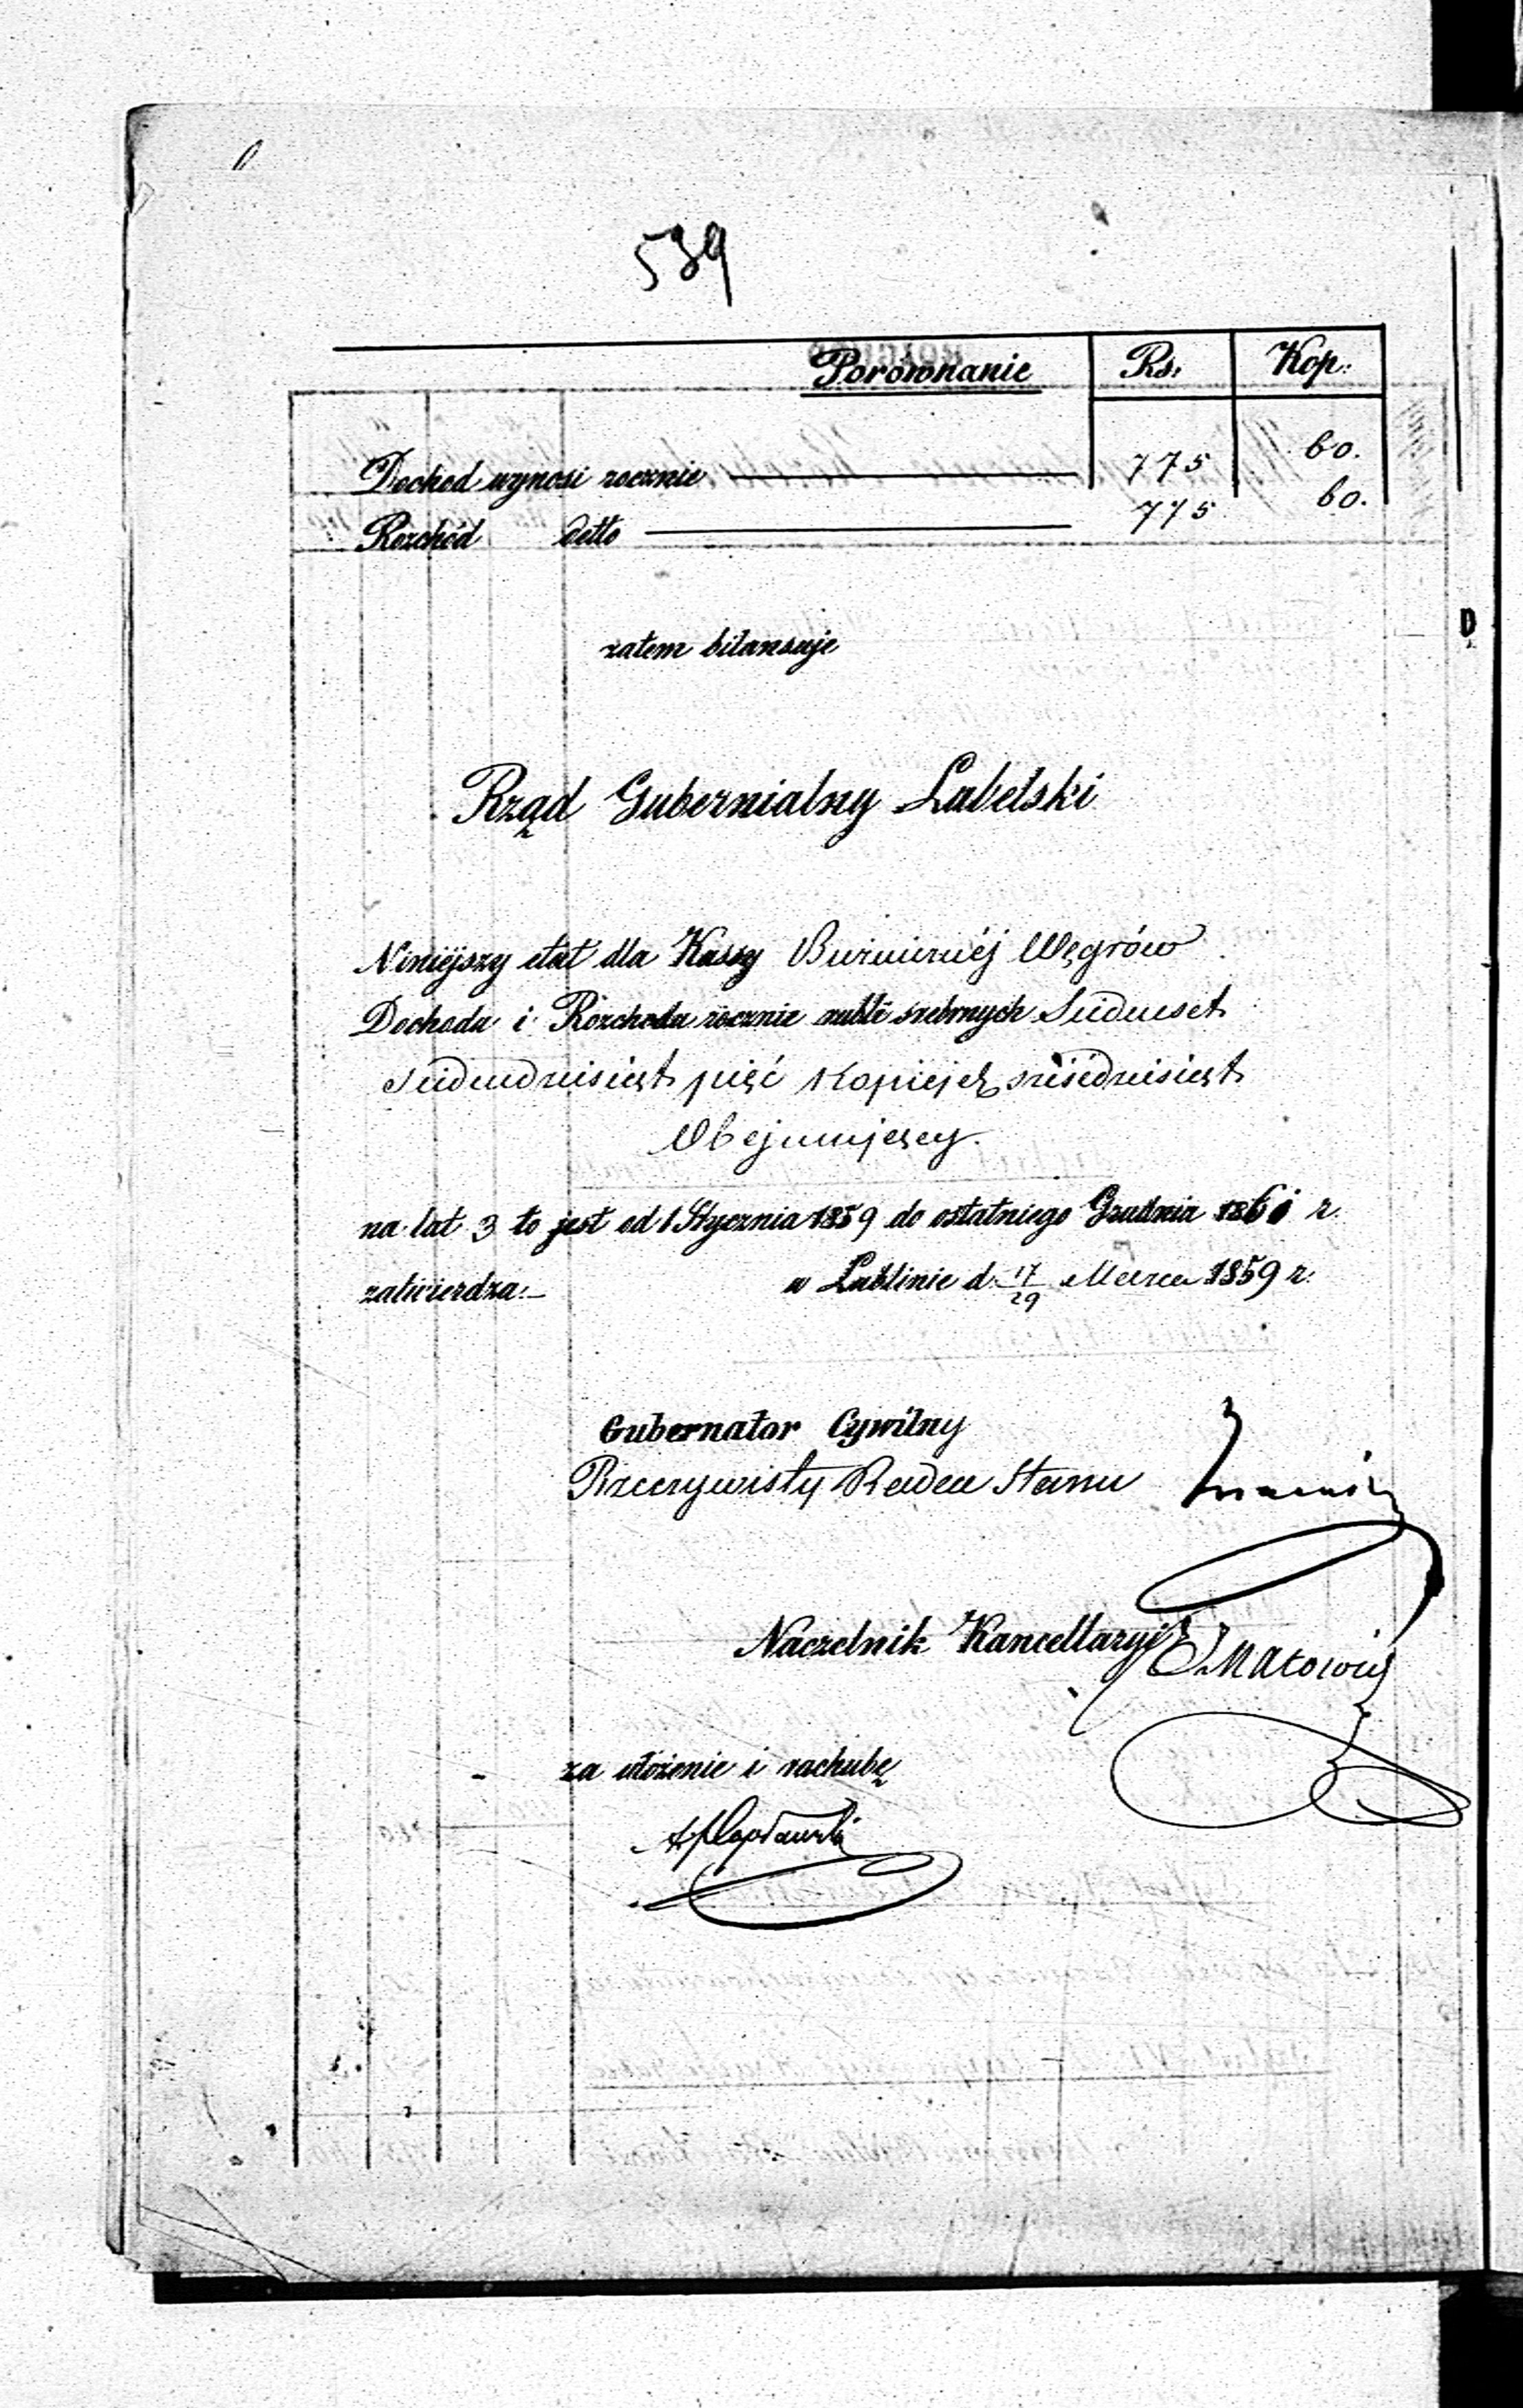 539
Porównanie Rs. Kop:
Dochód wynosi rocznie 775 60.
Rozchód detto 775 60.
zatem bilansuje
Rząd Gubernialny Lubelski
Niniéjszy etat dla Kassy Bużniczéj Węgrów
Dochodu i Rozchodu rocznie rubli srebrnych Siedmset
siedmdziesiąt pięć kopiejek sześćdziesiąt
Obejmujący.
na lat 3 to jest od 1 Stycznia 1859 do ostatniego Grudnia 1861 r.
zatwierdza._ w Lublinie d. 17/29 Marca 1859 r.
Gubernator Cywilny
Rzeczywisty Radca Stanu
Naczelnik Kancellaryi
za ułożenie i rachubę